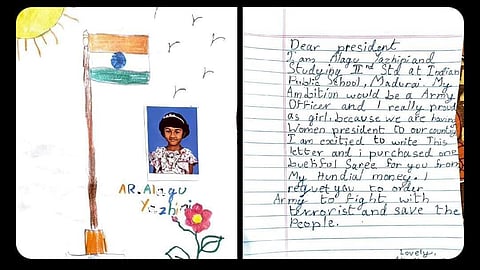 AR.Alagu
Yazhini
Dear president
I am Alagu Yazhini and
Studying IInd Std at Indian
Public School, Madurai. My
Ambition would be a Army
Officer and I really proud
as girl, because we are having
Women president to our country
I am exitied to write This
letter and i purchased one
butiful Saree for you from
My Hundial money. I
request you to order
Army to fight with
terrorist and save the
People.
Lovely,